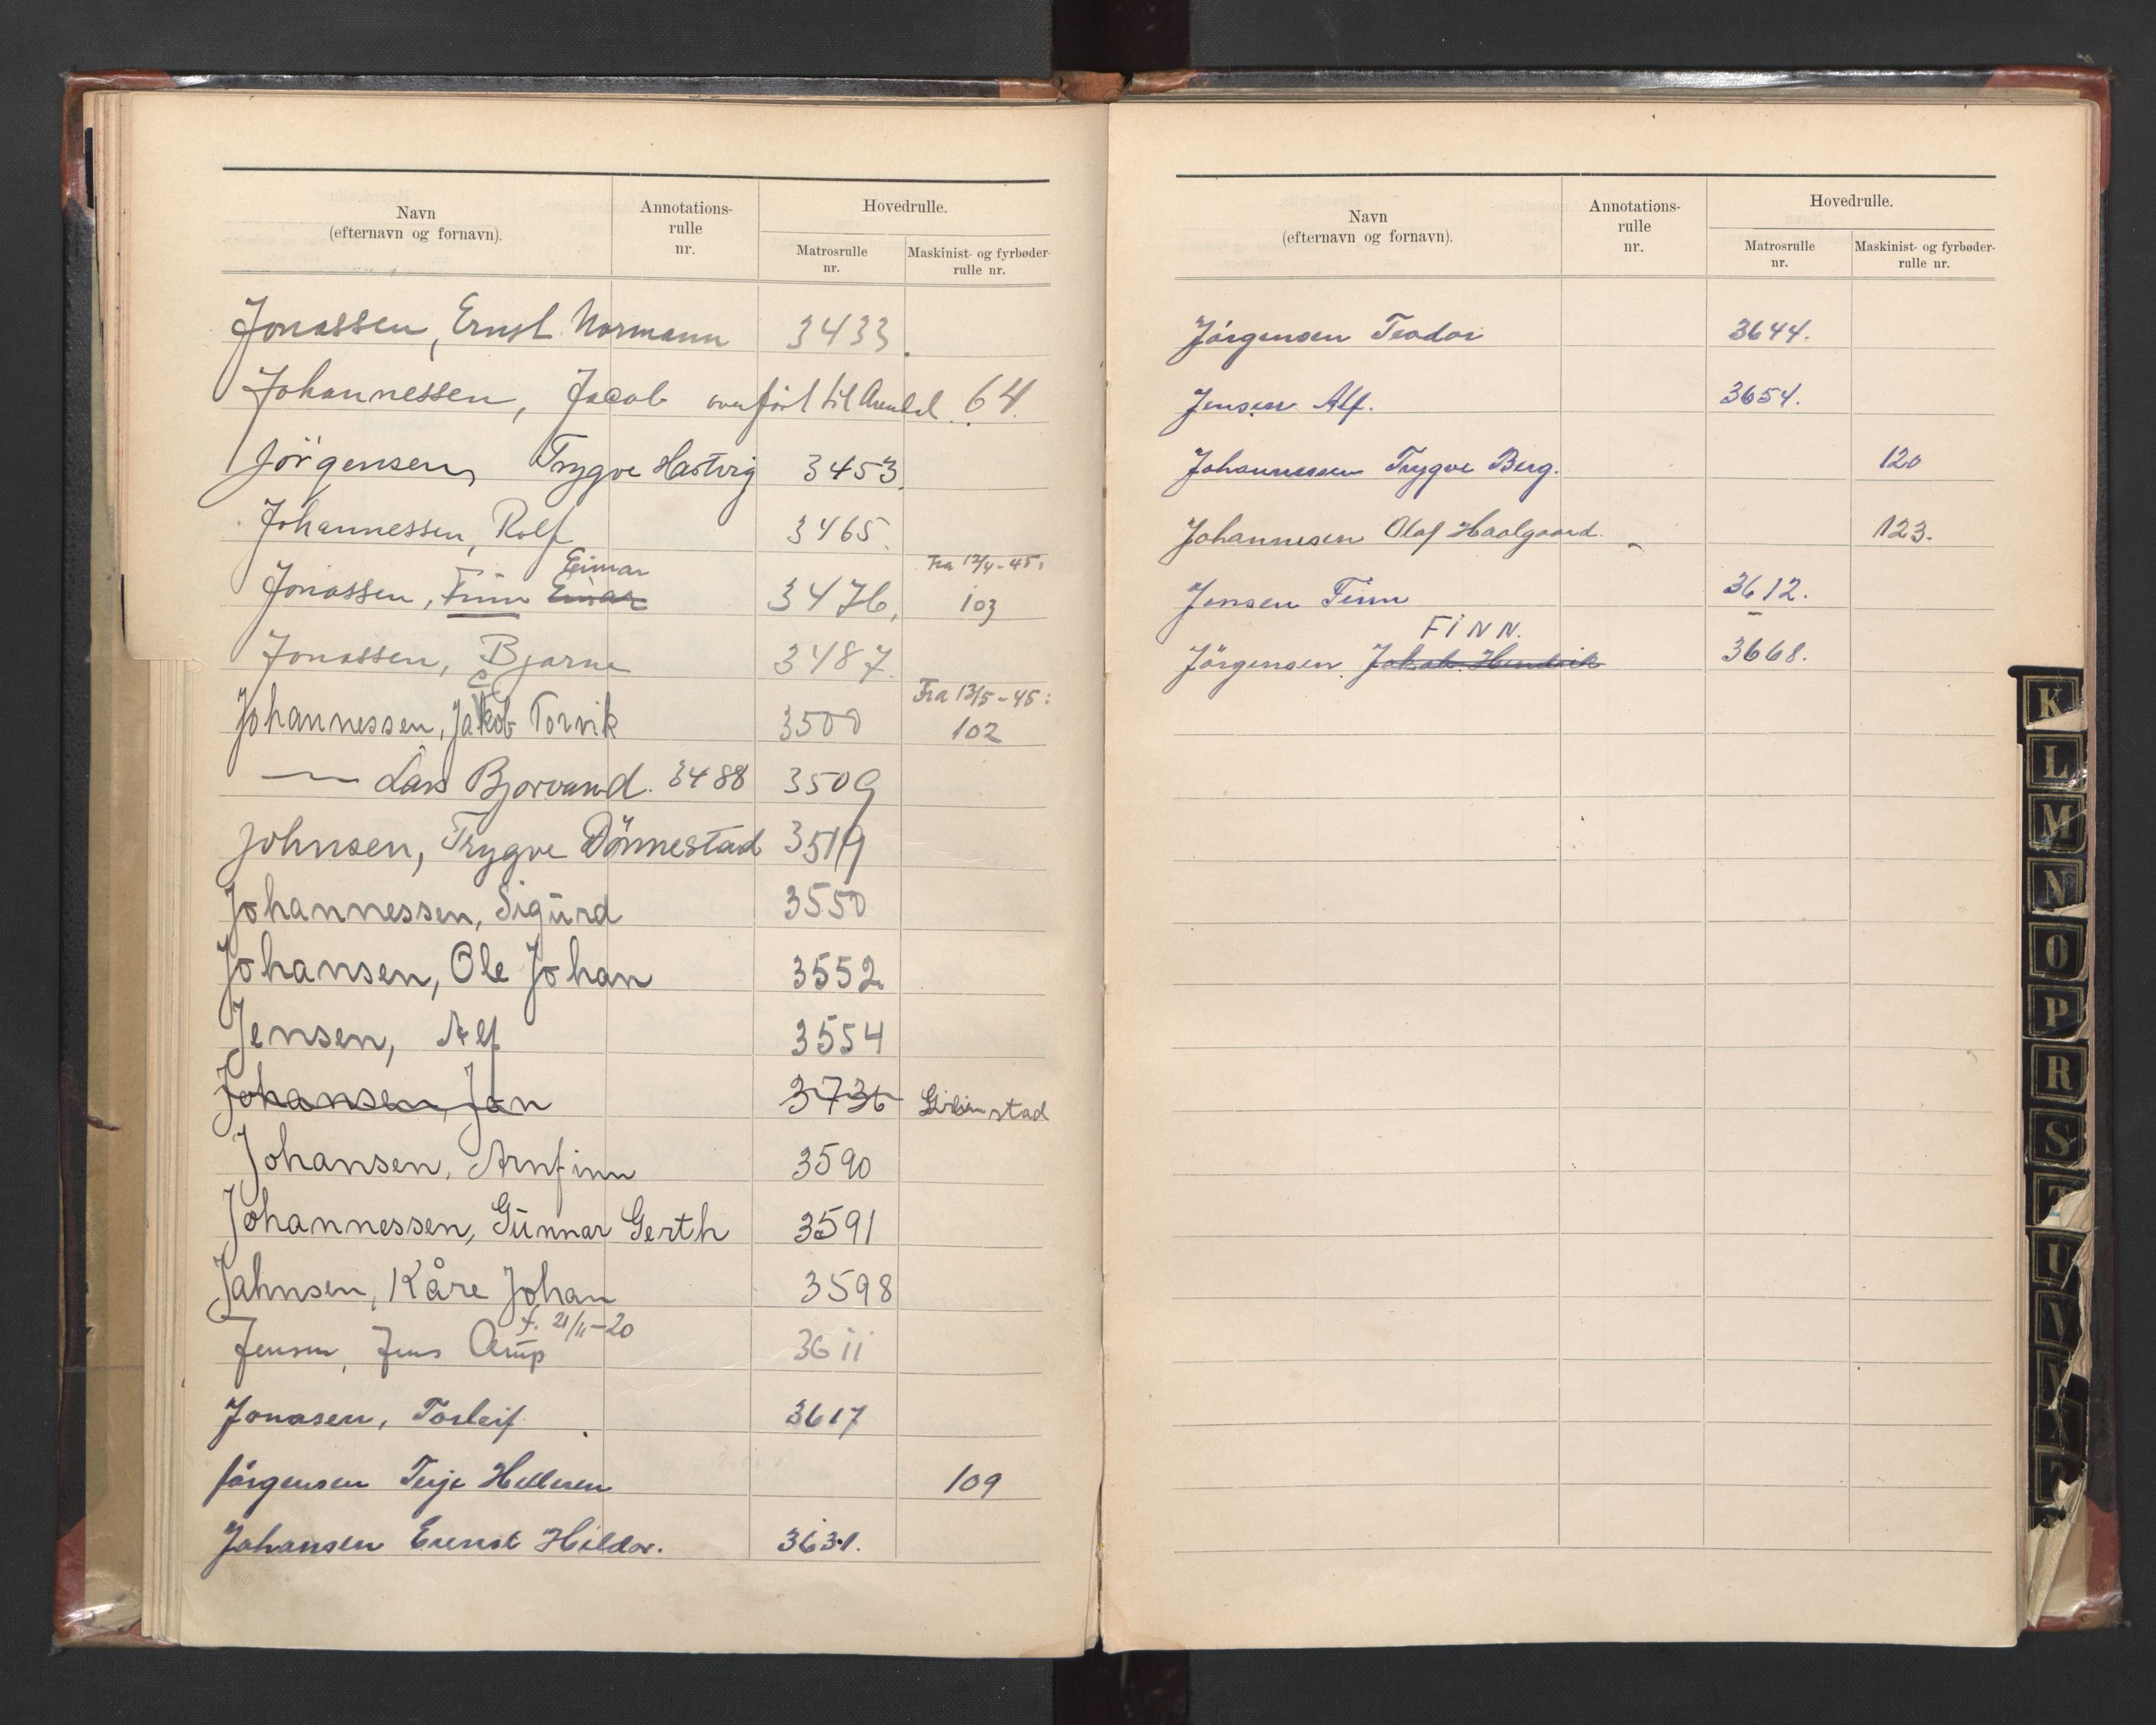 Navn
(efternavn og fornavn).
Annotations-
rulle
nr.
Hovedrulle.
Matrosrulle
nr.
Maskinist- og fyrbøder-
rulle nr.
Jonassen, Ernst Normann 3433.
Johannessen, Jacob overført til Arendal. 64.
Jörgensen, Trygve Hartvig 3453.
Johannessen, Rolf 3465.
Einar Fra 12/4-45:
Jonassen, Finn Einar 3476. 103
Jonassen, Bjarne 3487.
c Fra 13/5-45:
Johannessen, Jakob Torvik 3500 102
— Lars Bjorvand. 3488 3509
Johnsen, Trygve Dönnestad 3519
Johannessen, Sigurd 3550
Johansen, Ole Johan 3552
Jensen, Alf 3554
Johansen, Jan 3736 Grimstad
Johansen, Arnfinn 3590
Johannessen, Gunnar Gerth 3591
Jahnsen, Kåre Johan 3598
f. 21/11-20
Jensen, Jens Arup 3611
Jonasen, Torleif. 3617
Jörgensen Terje Helleren 109
Johansen Ernst Hildor. 3631.
Navn
(efternavn og fornavn).
Annotations-
rulle
nr.
Hovedrulle.
Matrosrulle
nr.
Maskinist- og fyrbøder-
rulle nr.
Jörgensen Teodor 3644.
Jensen Alf. 3654.
Johannessen Trygve Berg. 120
Johannesen Olaf Haalgaard. 123.
Jensen Finn 3612.
FINN.
Jörgensen. Jakob Hendrik 3668.
K
L
M
N
O
P
R
S
T
U
V